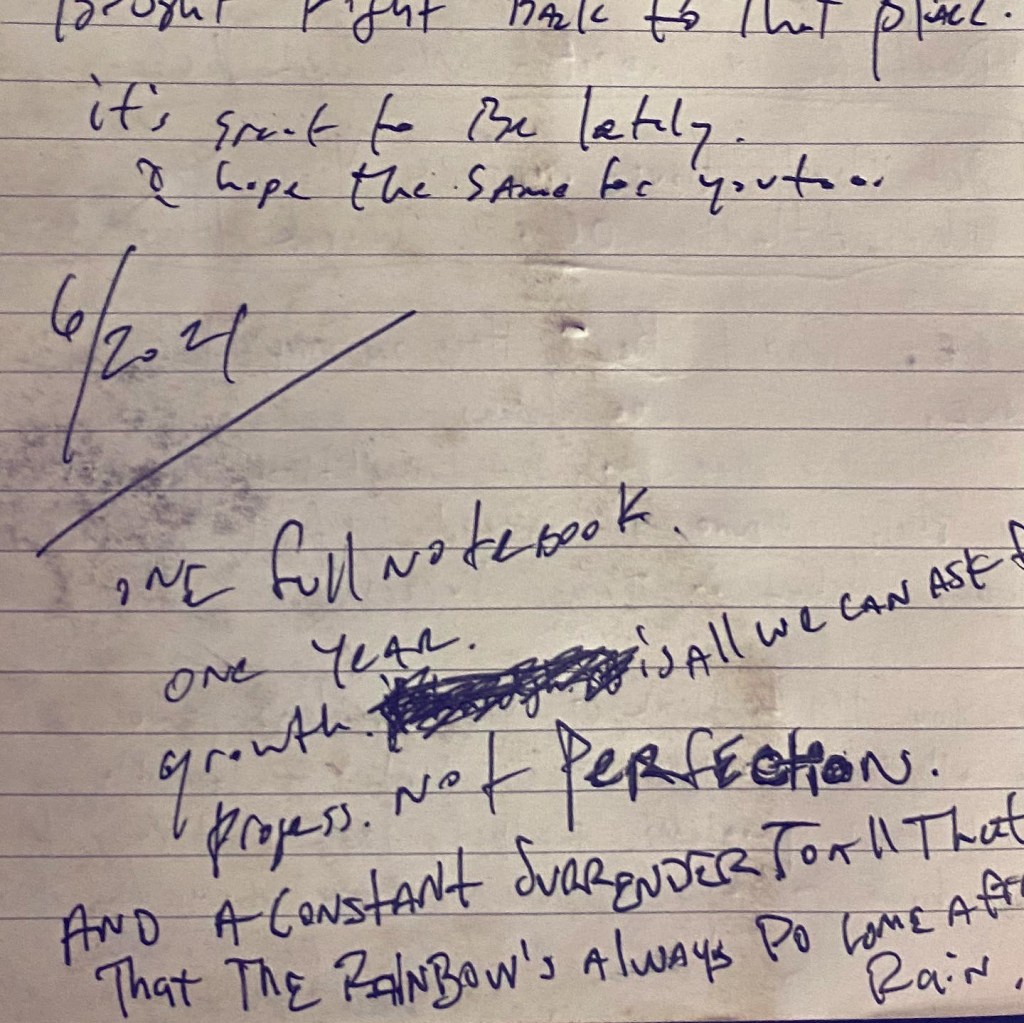 brought right back to that place.
it's great to Be lately.
I hope the SAme for you too..
6/2021
ONE full NOteBOOK.
ONE YEAR.
growth. is All we CAN ASK f
progess. Not PERfEctiON.
AND A CONStANt SURRENDER To All That
That THE RAINBOW's AlwAys Do COME Afte
RaiN.